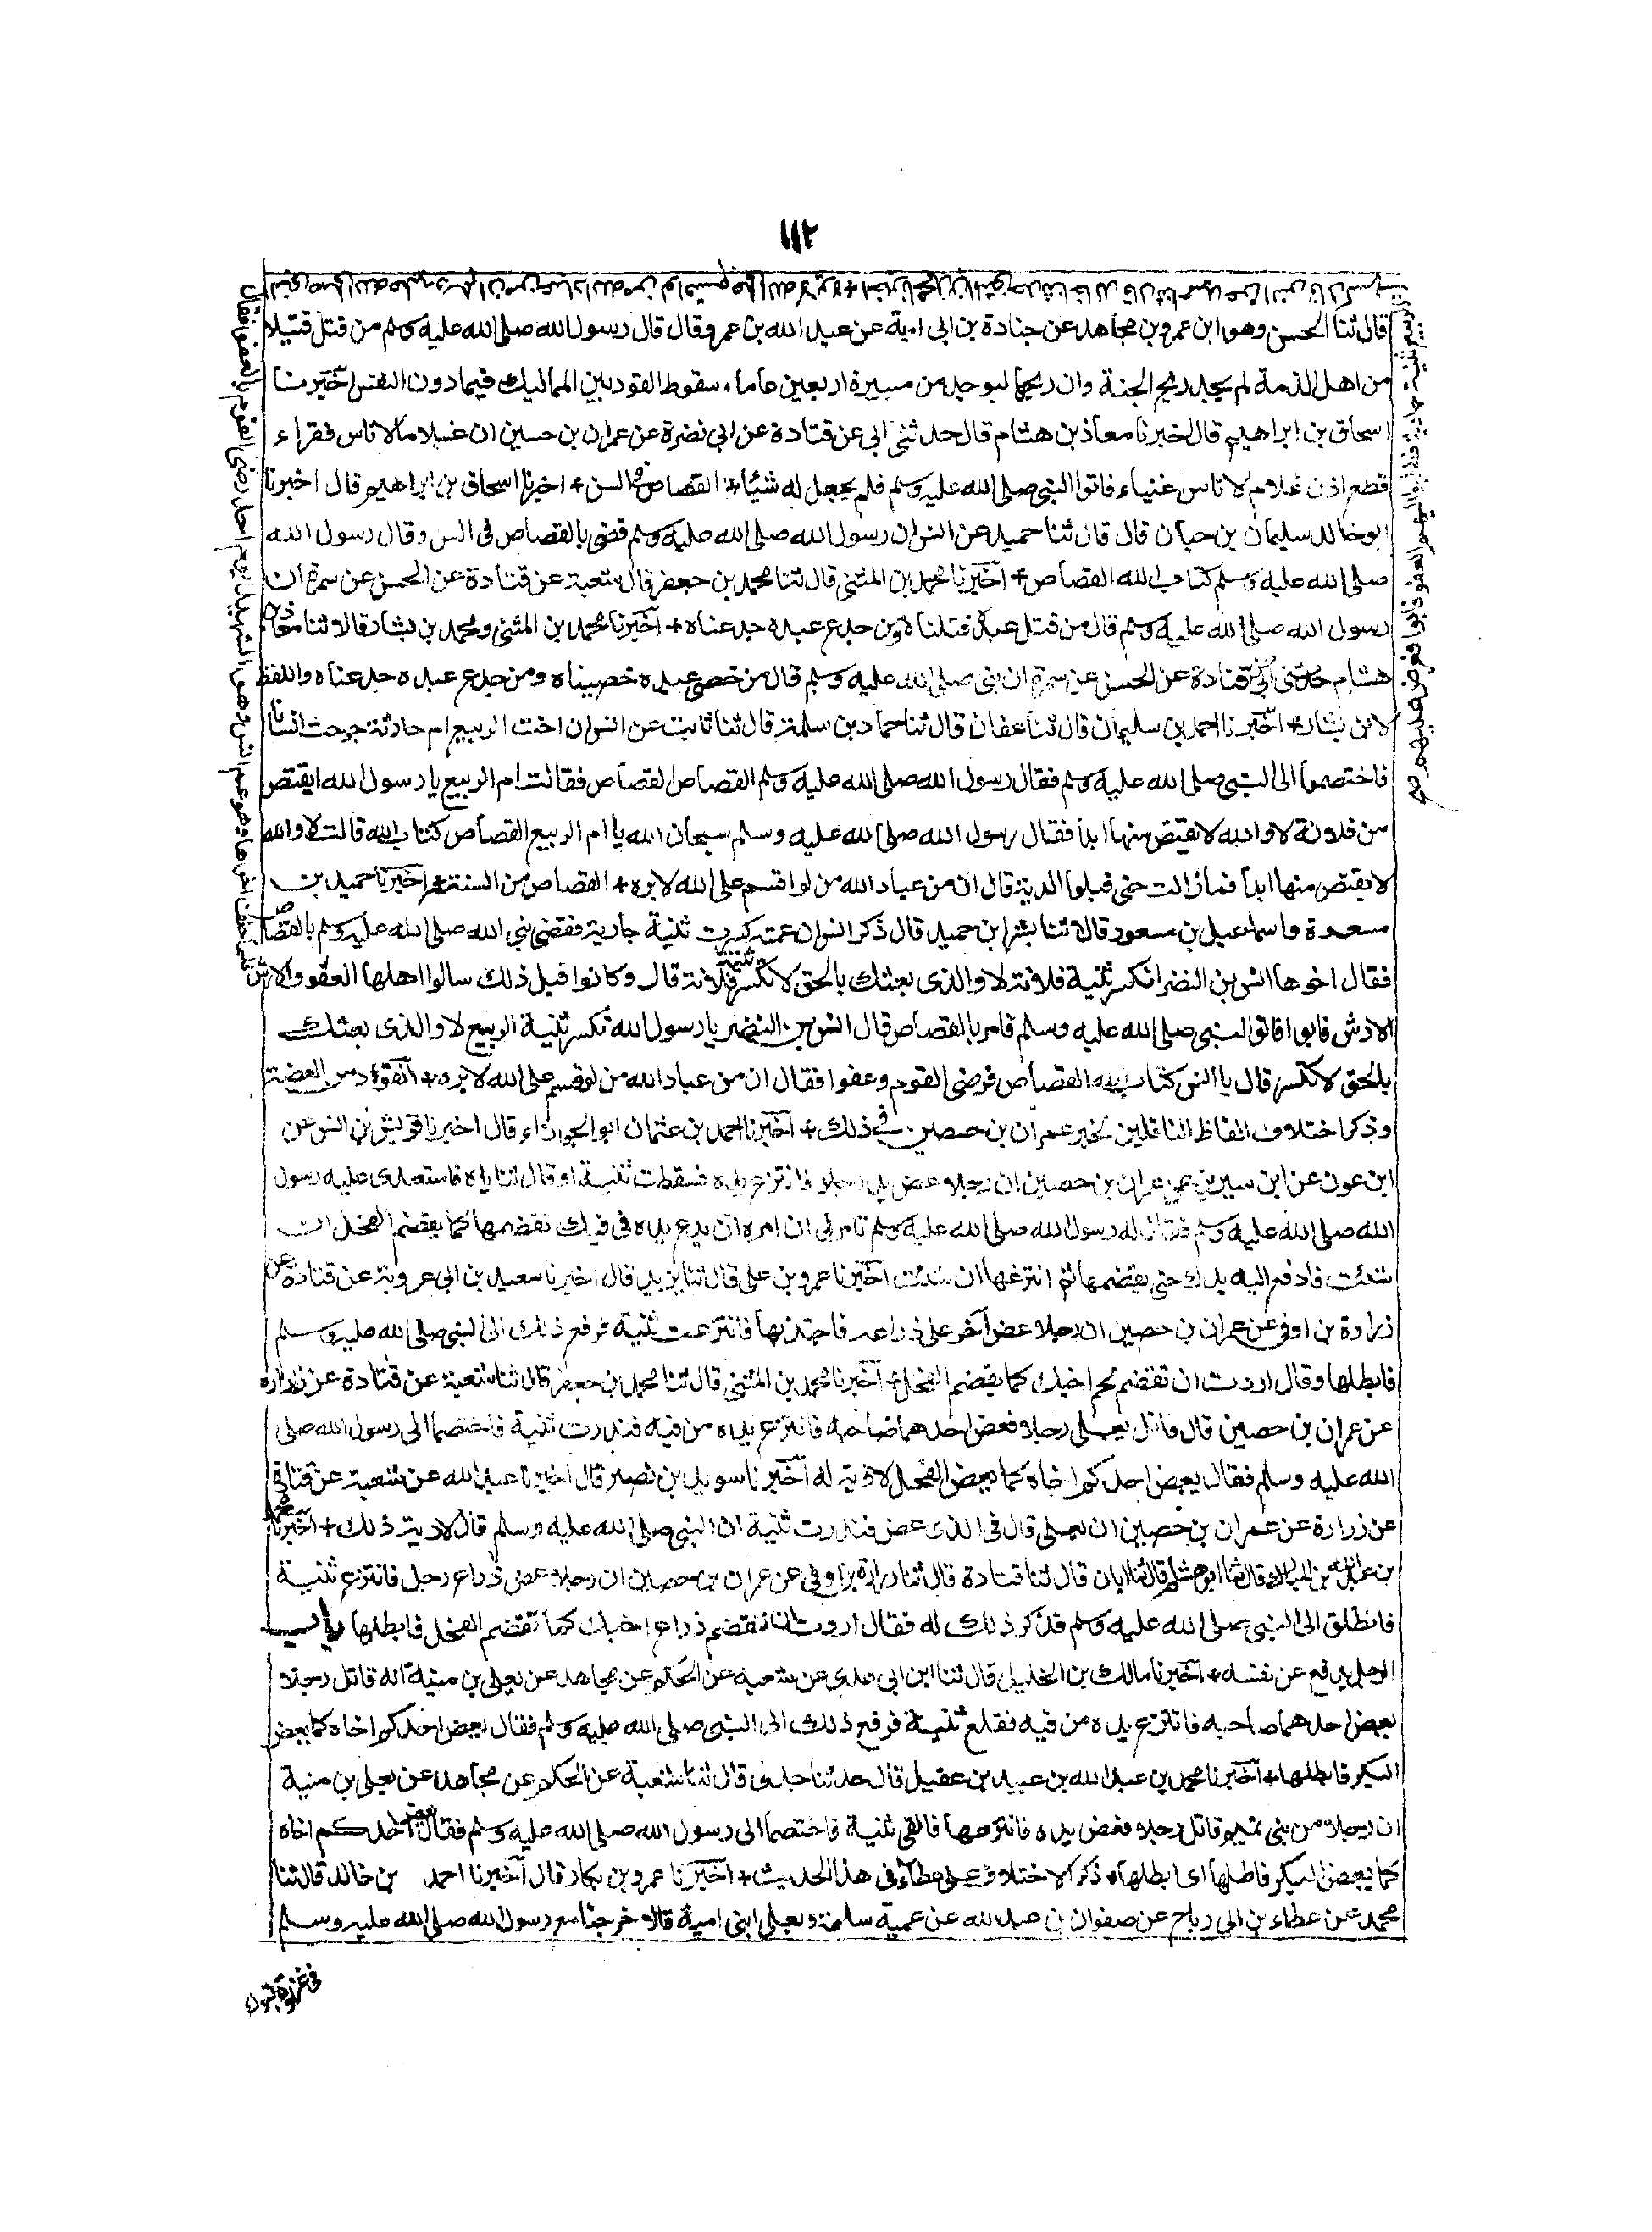 ١١٢
قال ثنا الحسن وهو ابن عمرو بن مجاهد عن جنادة بن ابى امية عن عبد الله بن عمر وقال قال رسول الله صلى الله عليه وسلم من قتل قتيلا
من اهل الذمة لم يجد ريح الجنة وان ريحها ليوجد من مسيرة اربعين عاما، سقوط القود بين المماليك فيما دون النفس اخبرنا
اسحاق بن ابراهيم قال اخبرنا معاذ بن هشام قال حدثنى ابى عن قتادة عن ابى نضرة عن عمران بن حسين ان غلاما لا ناس فقراء
قطع اذن غلام لا ناس اغنياء فاتوا النبى صلى الله عليه وسلم فلم يجعل له شيئا + القصاص فى السن + اخبرنا اسحاق بن ابراهيم قال اخبرنا
ابو خالد سليمان بن حبان قال قال ثنا حميد عن انس ان رسول الله صلى الله عليه وسلم قضى بالقصاص فى السن وقال رسول الله
صلى الله عليه وسلم كتاب الله القصاص + اخبرنا محمد بن المثنى قال ثنا محمد بن جعفر قال شعبة عن قتادة عن الحسن عن سمرة ان
رسول الله صلى الله عليه وسلم قال من قتل عبده قتلناه ومن جدع عبده جدعناه + اخبرنا محمد بن المثنى ومحمد بن بشار قالا ثنا معاذ بن
هشام حدثنى ابى عن قتادة عن الحسن عن سمرة ان نبى صلى الله عليه وسلم قال من خصى عبده خصيناه ومن جدع عبده جدعناه واللفظ
لابن بشار + اخبرنا احمد بن سليمان قال ثنا عفان قال ثنا حماد بن سلمة قال ثنا ثابت عن انس ان اخت الربيع ام حادثة جرحت انسانا
فاختصموا الى النبى صلى الله عليه وسلم فقال رسول الله صلى الله عليه وسلم القصاص القصاص فقالت ام الربيع يا رسول الله ايقتص
من فلانة لا والله لا يقتص منها ابدا فقال رسول الله صلى الله عليه وسلم سبحان الله يا ام الربيع القصاص كتاب الله قالت لا والله
لا يقتص منها ابدا فما زالت حتى قبلوا الدية قال ان من عباد الله من لو اقسم على الله لابره + القصاص من السنة + اخبرنا حميد بن
مسعدة واسماعيل بن مسعود قالا ثنا بشر ابن حميد قال ذكر انس ان عمته كسرت ثنية جارية فقضى نبى الله صلى الله عليه وسلم بالقصاص
فقال اخوها انس بن النضر اتكسر ثنية فلانة لا والذى بعثك بالحق لا تكسر ثنية فلانة قال وكانوا قبل ذلك سالوا اهلها العفو والارش
الارش فابوا فاتوا النبى صلى الله عليه وسلم فامر بالقصاص قال انس بن النضر يا رسول الله تكسر ثنية الربيع لا والذى بعثك
بالحق لا تكسر قال يا انس كتاب الله القصاص فرضى القوم وعفوا فقال ان من عباد الله من لو اقسم على الله لابره + القود من العضة
وذكر اختلاف الفاظ الناقلين لخبر عمران بن حصين فى ذلك + اخبرنا احمد بن عثمان ابو الجوزاء قال اخبرنا قريش بن انس عن
ابن عون عن ابن سيرين عن عمران بن حصين ان رجلا عض يد رجل فانتزع يده فسقطت ثنية او قال ثناياه فاستعدى عليه رسول
الله صلى الله عليه وسلم فقال له رسول الله صلى الله عليه وسلم تامرنى ان امره ان يدع يده فى فيك تقضمها كما يقضم الفحل ان
شئت فادفع اليه يدك حتى يقضمها ثم انتزعها ان شئت اخبرنا عمرو بن على قال ثنا يزيد قال اخبرنا سعيد بن ابى عروبة عن قتادة عن
زرارة بن اوفى عن عمران بن حصين ان رجلا عض آخر على ذراعه فاجتذبها فانتزعت ثنية فرفع ذلك الى النبى صلى الله عليه وسلم
فابطلها وقال اردت ان تقضم لحم اخيك كما يقضم الفحل + اخبرنا محمد بن المثنى قال ثنا محمد بن جعفر قال ثنا شعبة عن قتادة عن زرارة
عن عمران بن حصين قال قاتل يعلى رجلا فعض احدهما صاحبه فانتزع يده من فيه فندرت ثنية فاختصما الى رسول الله صلى
الله عليه وسلم فقال يعض احدكم اخاه كما يعض الفحل لا دية له اخبرنا سويد بن نصير قال اخبرنا عبد الله عن شعبة عن قتادة
عن زرارة عن عمران بن حصين ان يعلى قال فى الذى عض فندرت ثنية ان النبى صلى الله عليه وسلم قال لا دية ذلك + اخبرنا محمد
بن عبد الله بن المبارك قال ثنا ابو هشام قال ثنا ابان قال ثنا قتادة قال ثنا زرارة بن اوفى عن عمران بن حصين ان رجلا عض ذراع رجل فانتزع ثنية
فانطلق الى النبى صلى الله عليه وسلم فذكر ذلك له فقال اردت ان تقضم ذراع اخيك كما تقضم الفحل فابطلها باب
الرجل يدفع عن نفسه + اخبرنا مالك بن الخليل قال ثنا ابن ابى عدى عن شعبه عن الحكم عن مجاهد عن يعلى بن منية انه قاتل رجلا
يعض احدهما صاحبه فانتزع يده من فيه فقلع ثنية فرفع ذلك الى النبى صلى الله عليه وسلم فقال يعض احدكم اخاه كما يعض
البكر فابطلها + اخبرنا محمد بن عبد الله بن عبيد بن عقيل قال حدثنا جدى قال ثنا شعبة عن الحكم عن مجاهد عن يعلى بن منية
ان رجلا من بنى تميم قاتل رجلا فعض يده فانتزعها فالقى ثنية فاختصما الى رسول الله صلى الله عليه وسلم فقال يعض احدكم اخاه
كما يعض البكر فاطلها اى ابطلها، ذكر الاختلاف على عطاء فى هذا الحديث + اخبرنا عمرو بن بكار قال اخبرنا احمد بن خالد قال ثنا
محمد عن عطاء بن ابى رباح عن صفوان بن عبد الله عن عمية سلمة ويعلى ابنى امية قالا خرجنا مع رسول الله صلى الله عليه وسلم
فى غزوة تبوك